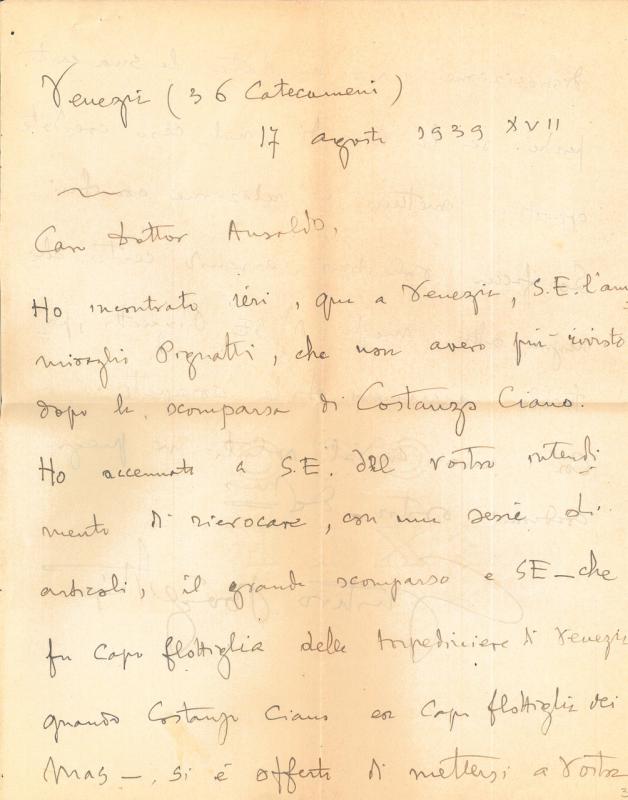 Venezia (36 Catecumeni)
17 agosto 1939 XVII
Caro Dottor Ansaldo,
Ho incontrato ieri, qua a Venezia, S.E. l'am
miraglio Pignatti, che non avevo più rivisto
dopo la scomparsa di Costanzo Ciano.
Ho accennato a S.E. del vostro intendi
mento di rievocare, con una serie di
articoli, il grande scomparso e SE – che
fu Capo flottiglia delle torpediniere di Venezia
quando Costanzo Ciano era Capo flottiglia dei
Mas –, si è offerto di mettersi a Vostra